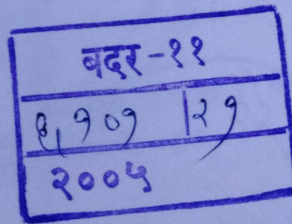 बदर-११
६१७१ |२१
२००५